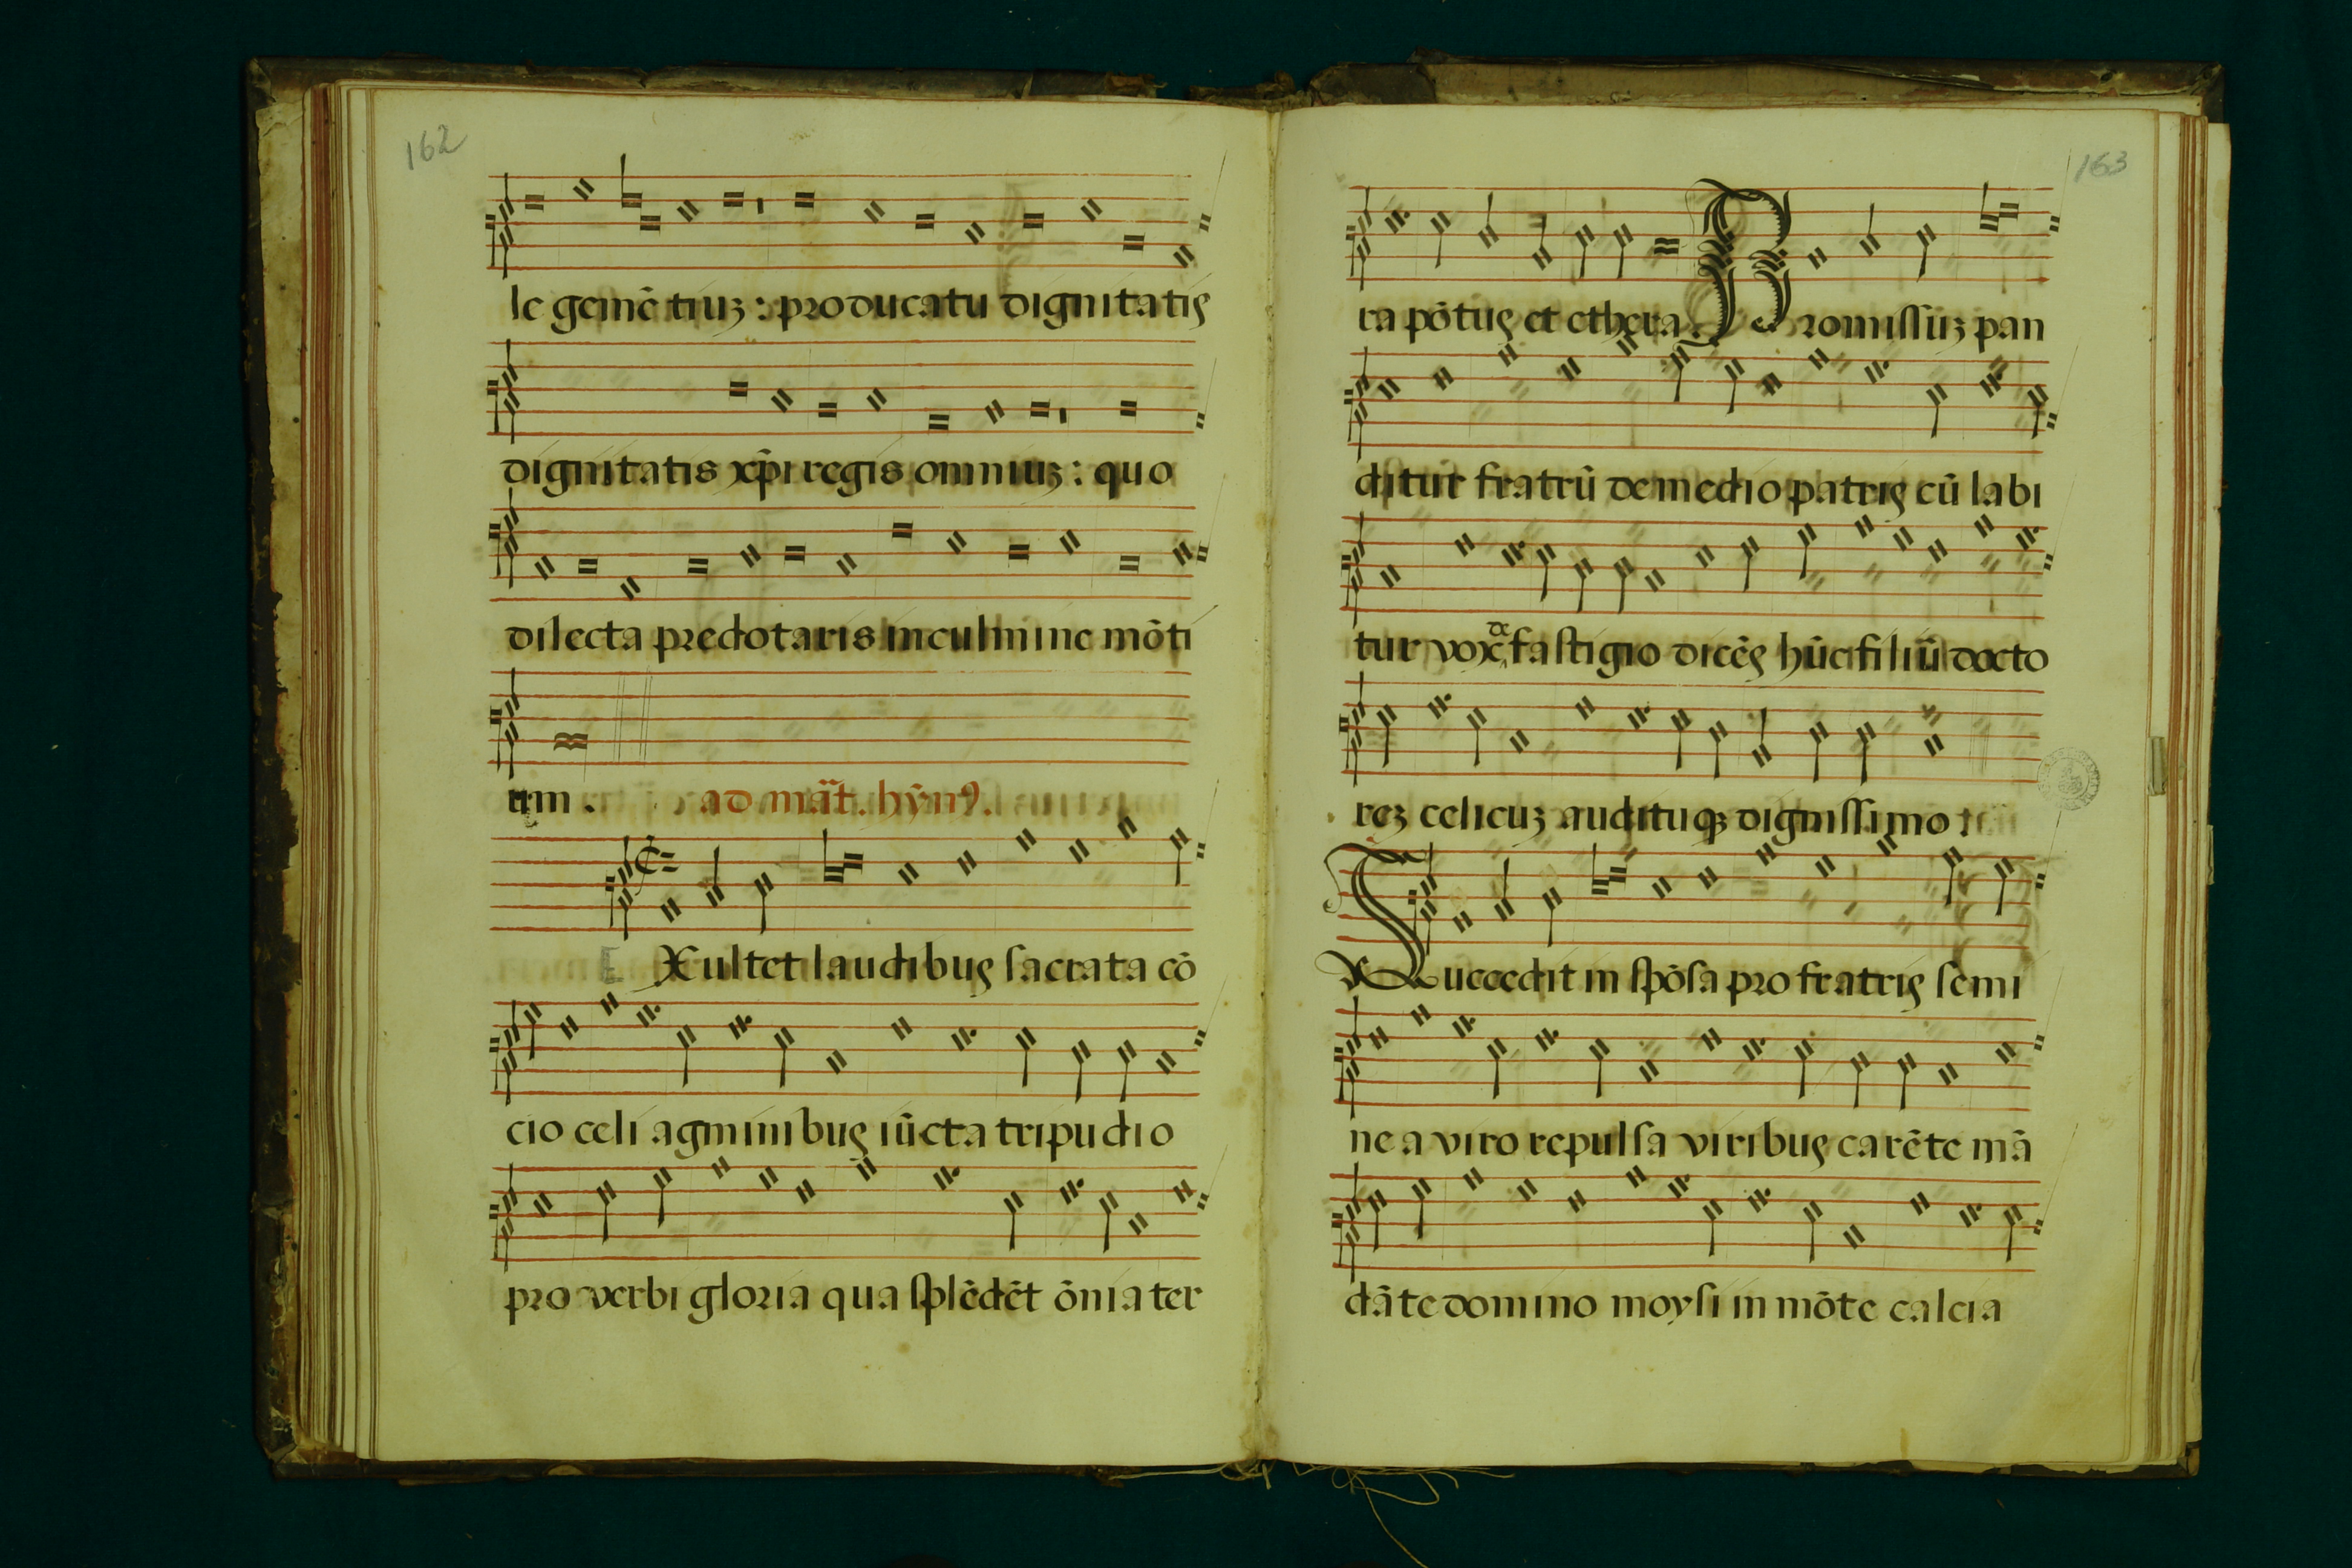 162
le gemē tiuȝ : pro ducatu dignitatis
dignitatis xp̄i regis omniuȝ : quo
dilecta predotaris in culmine mōti
um .
ad mat̄. hȳnꝯ.
E Xultet laudibus sacrata cō
cio celi agminibus iūcta tripudio
pro verbi gloria qua splēdēt ōnia ter
163
ra pōtus et ethera . Promissuȝ pan
ditur fratrū de medio patris cū labi
tur vox de fastigio dicēs hūc filiū docto
reȝ celicuȝ audituqȝ dignissimo :
Succedit in spōsa pro fratris semi
ne a viro repulsa viribus carēte mā
dāte domino moysi in mōte calcia